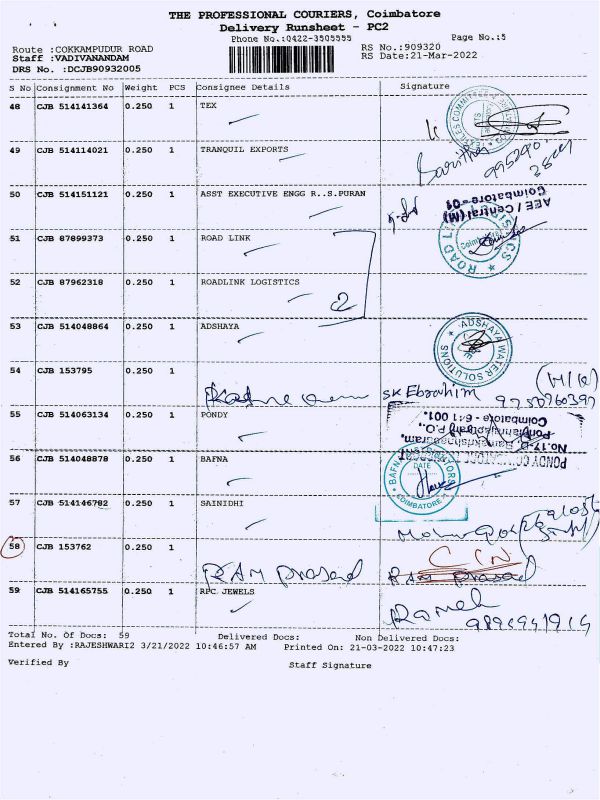 THE PROFESSIONAL COURIERS, Coimbatore
Delivery Runsheet - PC2
Phone No.:0422-3505555 Page No.:5
Route :COKKAMPUDUR ROAD RS No.:909320
Staff :VADIVANANDAM RS Date:21-Mar-2022
DRS No. :DCJB90932005
S No Consignment No Weight PCS Consignee Details Signature
48 CJB 514141364 0.250 1 TEX
49 CJB 514114021 0.250 1 TRANQUIL EXPORTS
50 CJB 514151121 0.250 1 ASST EXECUTIVE ENGG R..S.PURAN
AEE / Central (M)
Coimbatore - 01
51 CJB 87899373 0.250 1 ROAD LINK
52 CJB 87962318 0.250 1 ROADLINK LOGISTICS
2
53 CJB 514048864 0.250 1 ADSHAYA
ADSHAYA WATER SOLUTIONS
54 CJB 153795 0.250 1
SK Ebrahim
55 CJB 514063134 0.250 1 PONDY
Coimbatore - 641 001.
56 CJB 514048878 0.250 1 BAFNA
BAFNA DISTRIBUTORS
DATE
COIMBATORE
57 CJB 514146782 0.250 1 SAINIDHI
58 CJB 153762 0.250 1
RAM prasad RAM prasad
59 CJB 514165755 0.250 1 RPC JEWELS
Ramesh
Total No. Of Docs: 59 Delivered Docs: Non Delivered Docs:
Entered By :RAJESHWARI2 3/21/2022 10:46:57 AM Printed On: 21-03-2022 10:47:23
Verified By Staff Signature